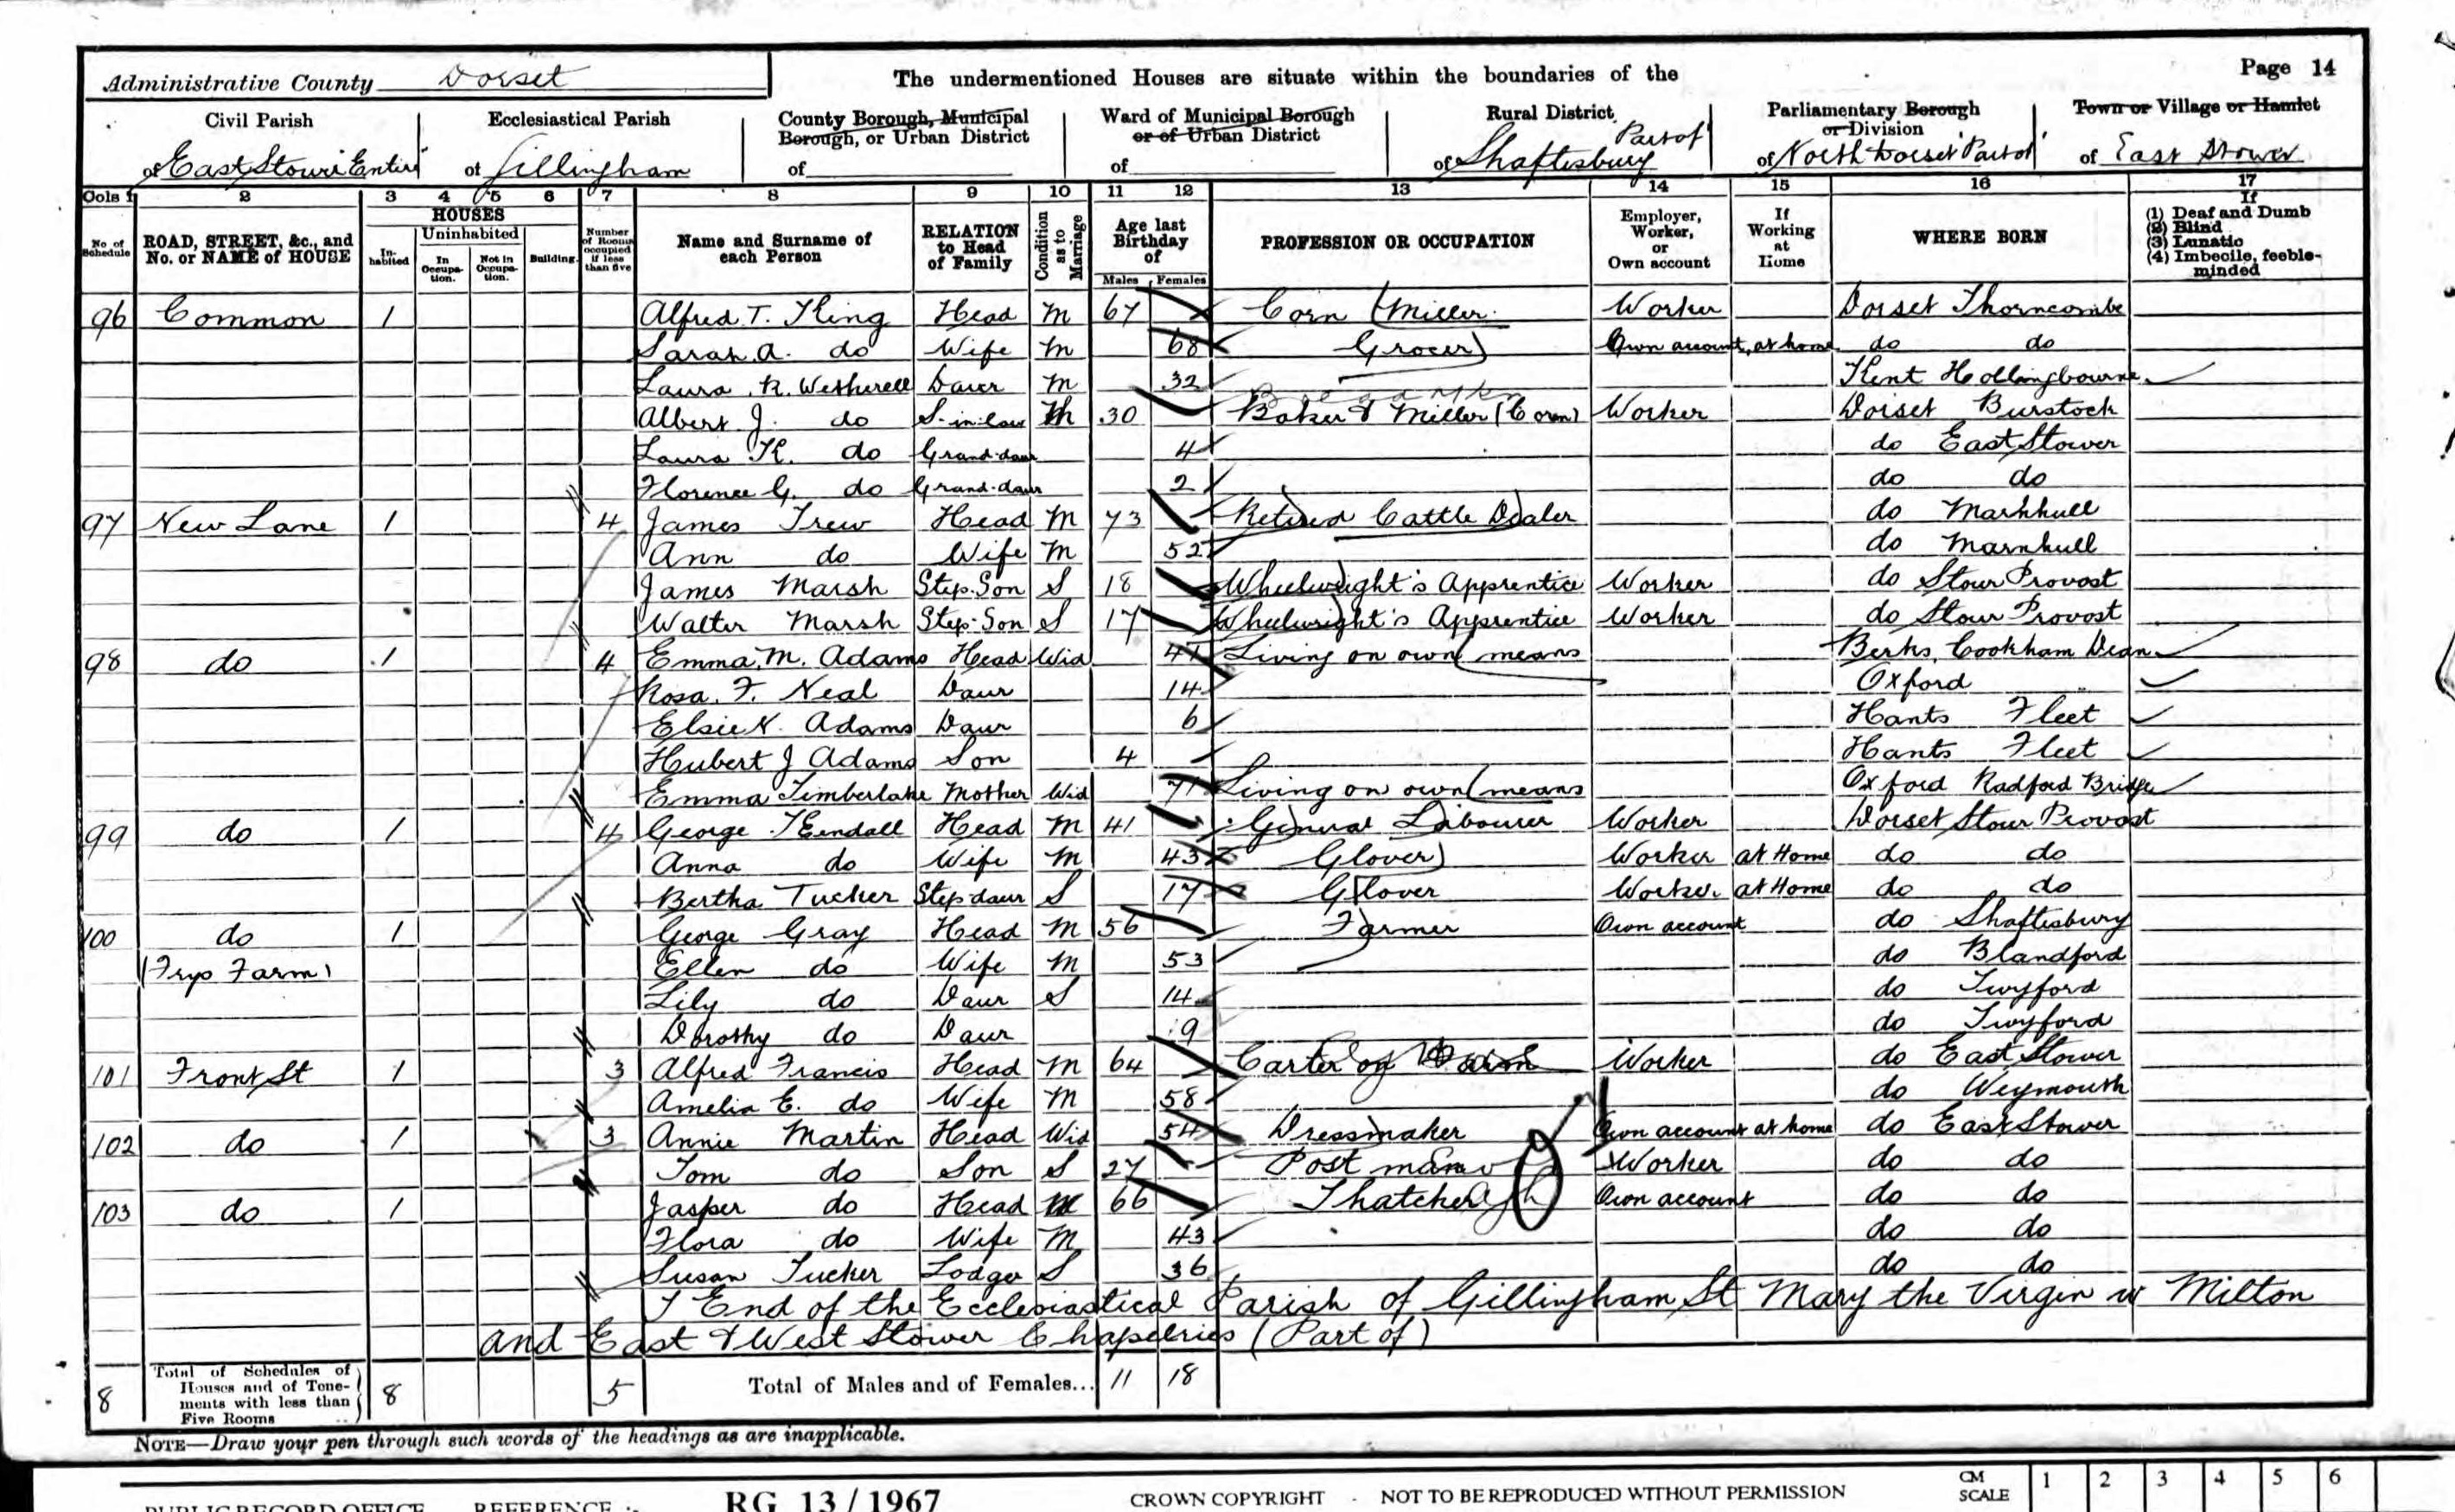 Administrative County Dorset
The undermentioned Houses are situate within the boundaries of the
Page 14
Civil Parish of East Stour "Entire"
Ecclesiastical Parish of Gillingham
County Borough, Municipal Borough, or Urban District of
Ward of Municipal Borough or of Urban District of
Rural District of Shaftesbury Part of
Parliamentary Borough or Division of North Dorset 'Part of'
Town or Village or Hamlet of East Stower
Cols 1 2 3 4 5 6 7 8 9 10 11 12 13 14 15 16 17
No of Schedule
ROAD, STREET, &c., and No. or NAME of HOUSE
HOUSES
Inhabited
Uninhabited
In Occupation.
Not in Occupation.
Building.
Number of Rooms occupied if less than five
Name and Surname of each Person
RELATION to Head of Family
Condition as to Marriage
Age last Birthday of
Males Females
PROFESSION OR OCCUPATION
Employer, Worker, or Own account
If Working at Home
WHERE BORN
If
(1) Deaf and Dumb
(2) Blind
(3) Lunatic
(4) Imbecile, feeble-minded
96 Common 1 Alfred T. King Head M 67 Corn Miller Worker Dorset Thorncombe
Sarah A. do Wife M 68 Grocer Own account at home do do
Laura R. Wetherell Daur M 32 Kent Hollingbourne
Albert J. do S-in-law M 30 Baker & Miller (Corn) Worker Dorset Burstock
Laura K. do Grand-daur 4 do East Stower
Florence G. do Grand-daur 2 do do
97 New Lane 1 4 James Trew Head M 73 Retired Cattle Dealer do Marnhull
Ann do Wife M 52 do Marnhull
James Marsh Step-Son S 18 Wheelwright's Apprentice Worker do Stour Provost
Walter Marsh Step-Son S 17 Wheelwright's Apprentice Worker do Stour Provost
98 do 1 4 Emma M. Adams Head Wid 41 Living on own means Berks, Cookham Dean
Rosa F. Neal Daur 14 Oxford
Elsie N. Adams Daur 6 Hants Fleet
Hubert J Adams Son 4 Hants Fleet
Emma Timberlake Mother Wid 71 Living on own means Oxford Radford Bridge
99 do 1 4 George Kendall Head M 41 General Labourer Worker Dorset Stour Provost
Anna do Wife M 43 Glover Worker at Home do do
Bertha Tucker Step-daur S 17 Glover Worker at Home do do
100 do 1 George Gray Head M 56 Farmer Own account do Shaftesbury
(Frys Farm) Ellen do Wife M 53 do Blandford
Lily do Daur S 14 do Twyford
Dorothy do Daur 9 do Twyford
101 Front St 1 3 Alfred Francis Head M 64 Carter on Farm Worker do East Stower
Amelia E. do Wife M 58 do Weymouth
102 do 1 3 Annie Martin Head Wid 54 Dressmaker Own account at home do East Stower
Tom do Son S 27 Post man Worker do do
103 do 1 Jasper do Head M 66 Thatcher Own account do do
Flora do Wife M 43 do do
Susan Tucker Lodger S 36 do do
End of the Ecclesiastical Parish of Gillingham St Mary the Virgin w Milton
and East & West Stower Chapelries (Part of)
8 Total of Schedules of Houses and of Tenements with less than Five Rooms 8 5 Total of Males and of Females... 11 18
NOTE—Draw your pen through such words of the headings as are inapplicable.
PUBLIC RECORD OFFICE REFERENCE :- RG 13 / 1967 CROWN COPYRIGHT - NOT TO BE REPRODUCED WITHOUT PERMISSION CM SCALE 1 2 3 4 5 6